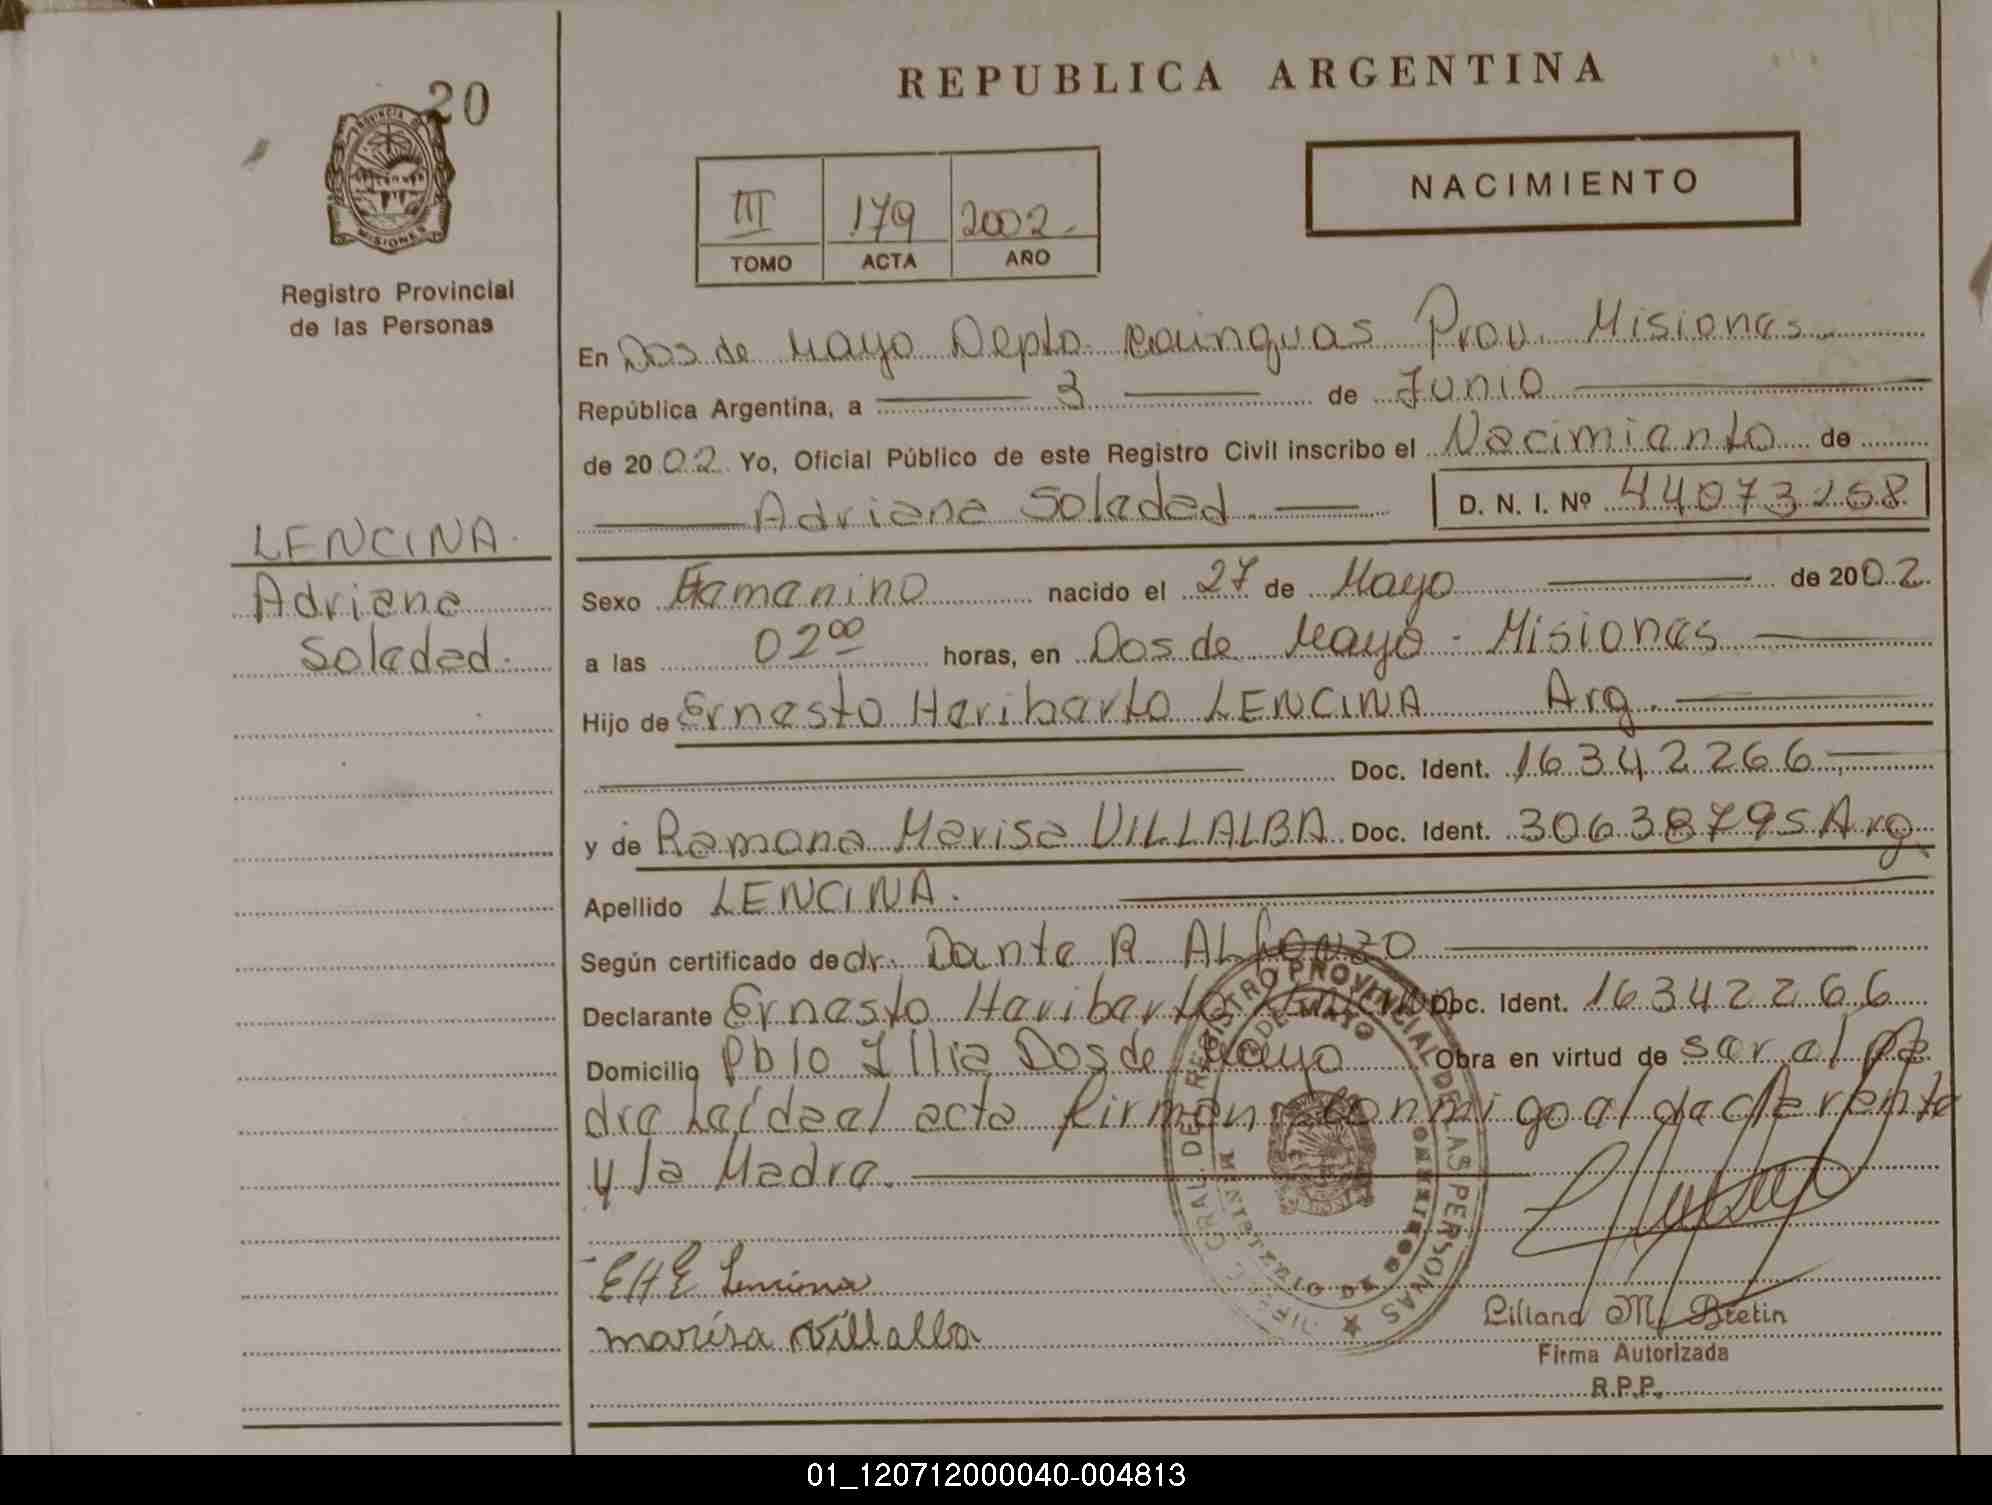 20
PROVINCIA DE
MISIONES
Registro Provincial
de las Personas
REPUBLICA ARGENTINA
NACIMIENTO
III 179 2002
TOMO ACTA AÑO
En Dos de Mayo Depto. Cainguas Prov. Misiones
República Argentina, a 3 de Junio
de 2002 Yo, Oficial Público de este Registro Civil inscribo el Nacimiento de
Adriana Soledad D. N. I. Nº 44073268
LENCINA.
Adriana
Soledad.
Sexo Femenino nacido el 27 de Mayo de 2002.
a las 02 00 horas, en Dos de Mayo - Misiones
Hijo de Ernesto Heriberto LENCINA Arg.
Doc. Ident. 16342266
y de Ramona Marisa VILLALBA Doc. Ident. 30638795 Arg.
Apellido LENCINA.
Según certificado de dr. Dante R. ALFONZO
Declarante Ernesto Heriberto Lencina Doc. Ident. 16342266
Domicilio Pblo Illia Dos de Mayo Obra en virtud de ser el pa
dre Leída el acta firman conmigo al declarente
y la Madre.
EHE Lencina
marisa Villalba
REGISTRO PROVINCIAL DE LAS PERSONAS
DOS DE MAYO
MISIONES
Lilland M. Bretin
Firma Autorizada
R.P.P.
01_120712000040-004813